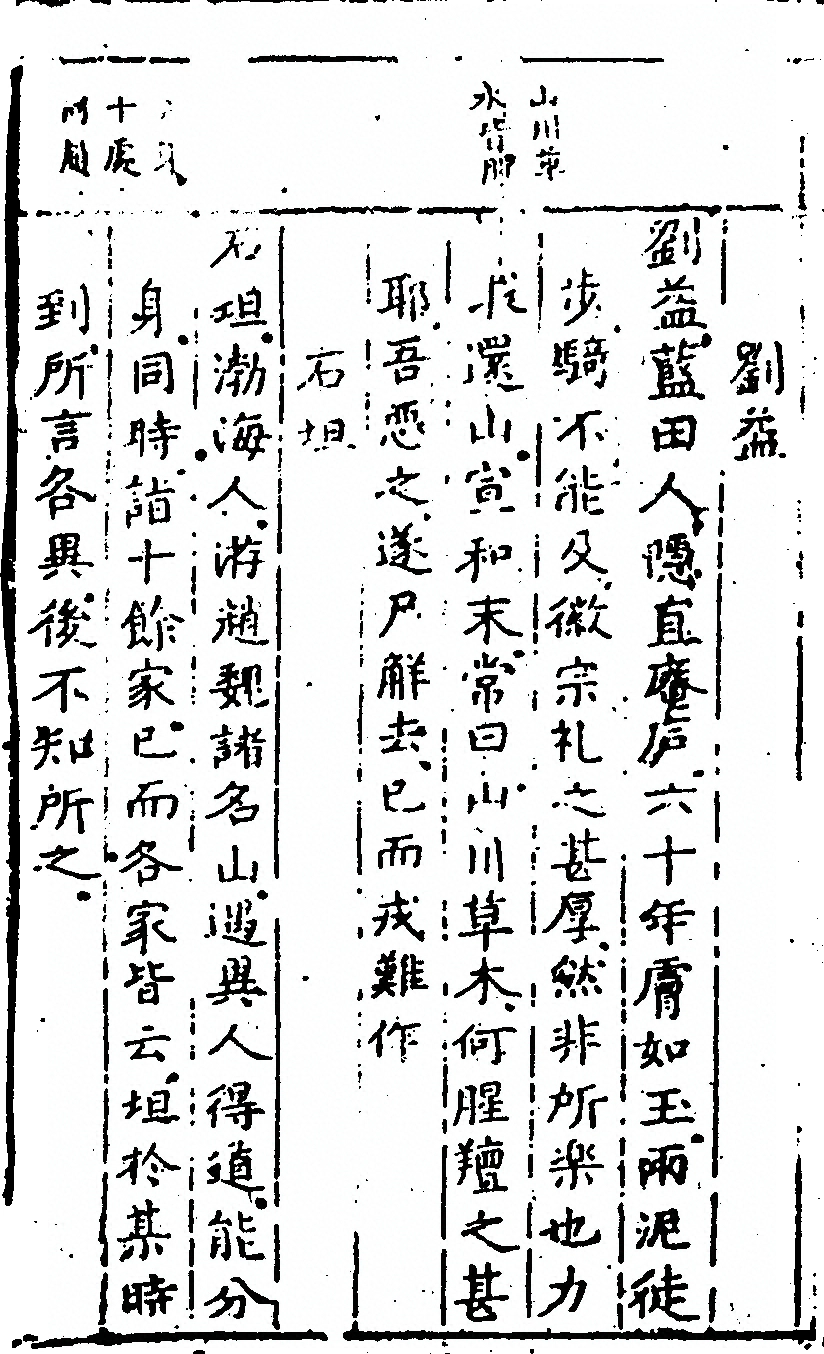 山川草
水皆
劉益
劉益藍田人隱直庐六十年膚如玉雨泥徒
步騎不能及徽宗礼之甚厚然非所楽也力
求還山宣和末常曰山川草木何腥羶之甚
耶吾悪之遂尸解去已而戎難作
十處
石坦
石坦渤海人游趙魏諸名山遇異人得道能分
身同時詣十餘家已而各家皆云坦於某時
到所言各異後不知所之